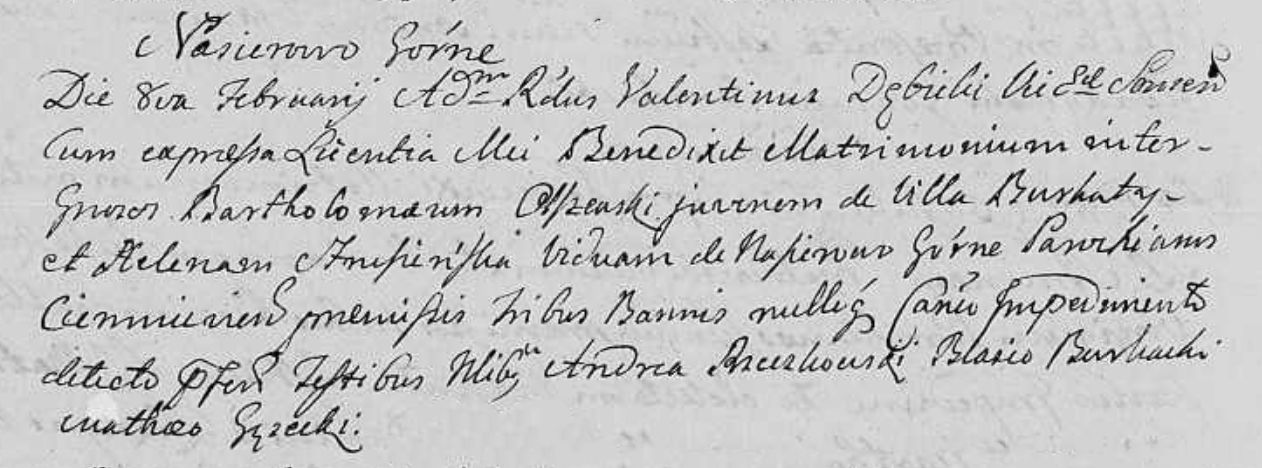 Nasierowo Gorne
Die 8va Februarij Adm Rdus Valentinus Dębicki
Cum expressa Licentia Mei Benedixit Matrimonium inter
Gnosos Bartholomæum Olszewski juvenem de Villa Burkaty
et Helenam viduam de Nasierowo Górne Parochianus
præmissis tribus Bannis nullóq Canco Impedimento
detecto psen Testibus Nlibq Andrea Blasio Burkacki
Mathæo